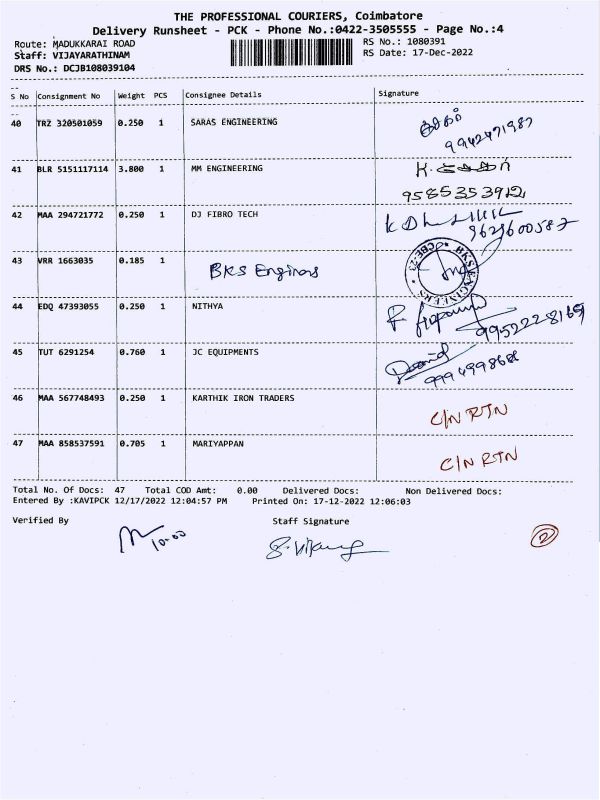 THE PROFESSIONAL COURIERS, Coimbatore
Delivery Runsheet - PCK - Phone No.:0422-3505555 - Page No.:4
Route: MADUKKARAI ROAD RS No.: 1080391
Staff: VIJAYARATHINAM RS Date: 17-Dec-2022
DRS No.: DCJB108039104
S No Consignment No Weight PCS Consignee Details Signature
40 TRZ 320501059 0.250 1 SARAS ENGINEERING
9942471987
41 BLR 5151117114 3.800 1 MM ENGINEERING
9585353912
42 MAA 294721772 0.250 1 DJ FIBRO TECH
9629600587
43 VRR 1663035 0.185 1 BKS Engineers
BKS ENGINEERS CBE-23
44 EDQ 47393055 0.250 1 NITHYA
9952228169
45 TUT 6291254 0.760 1 JC EQUIPMENTS
9994998686
46 MAA 567748493 0.250 1 KARTHIK IRON TRADERS C/N RTN
47 MAA 858537591 0.705 1 MARIYAPPAN C/N RTN
Total No. Of Docs: 47 Total COD Amt: 0.00 Delivered Docs: Non Delivered Docs:
Entered By :KAVIPCK 12/17/2022 12:04:57 PM Printed On: 17-12-2022 12:06:03
Verified By Staff Signature
10.00
2